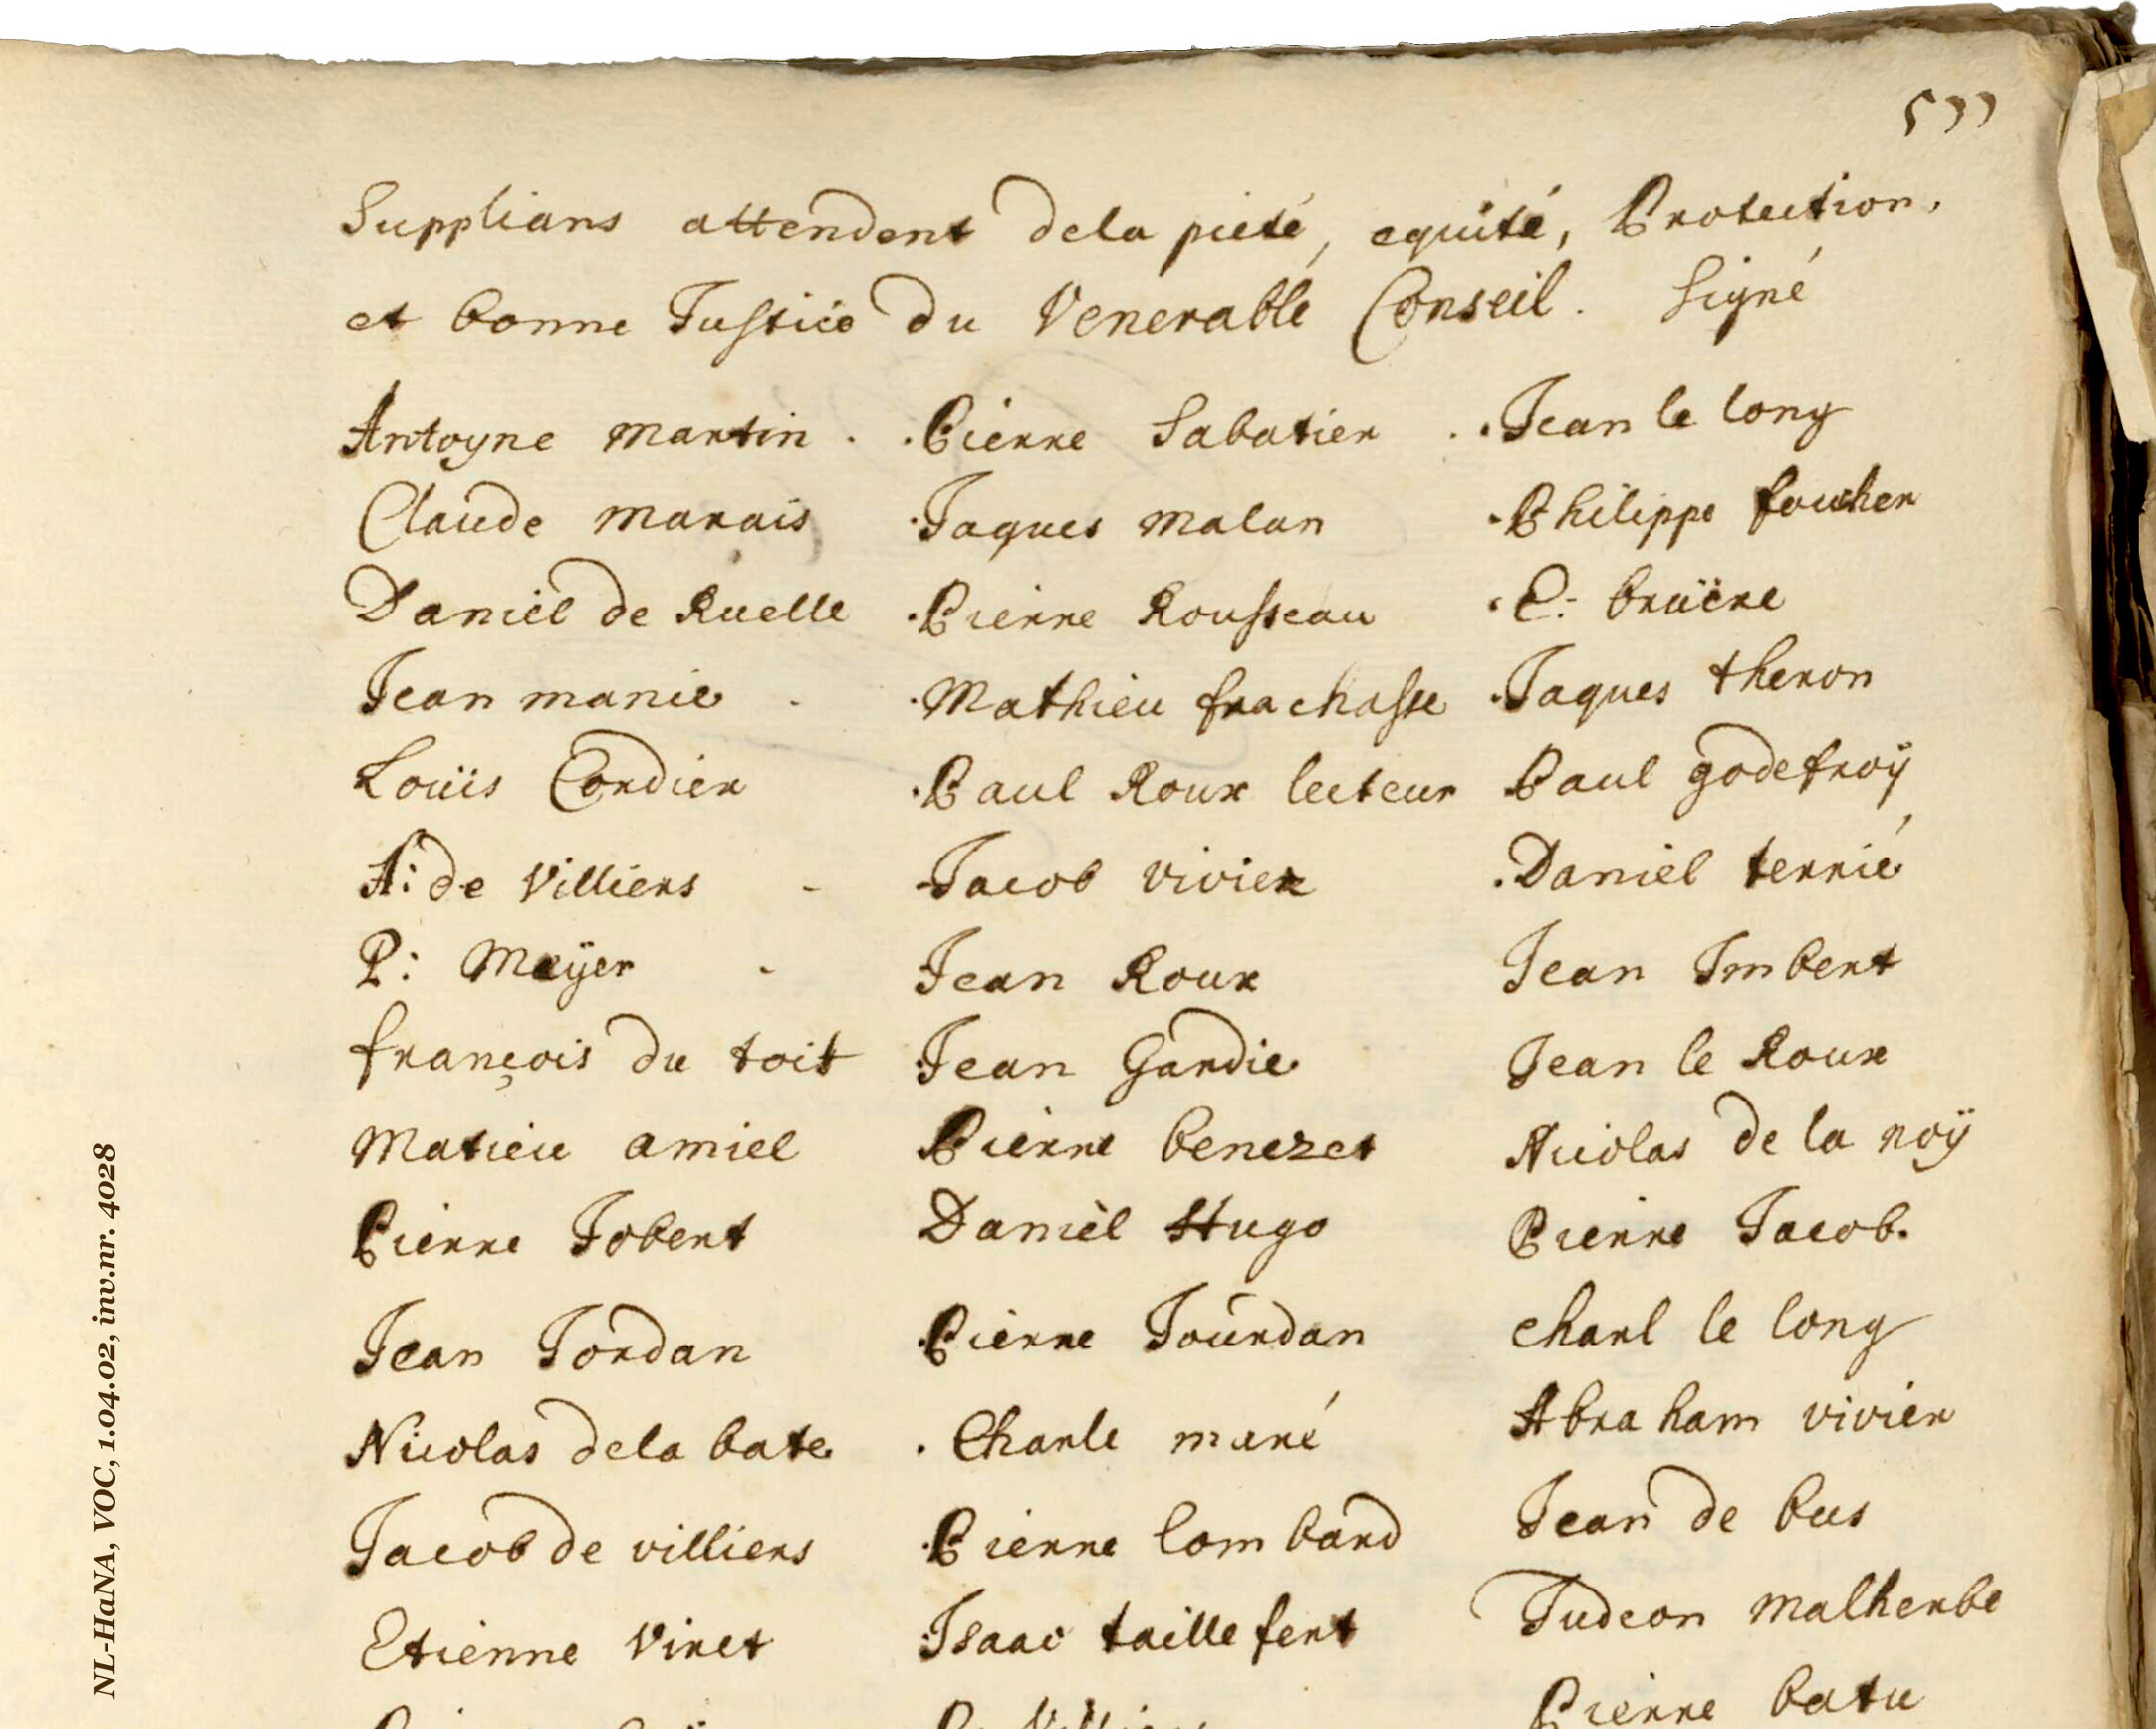 533
Supplians attendent dela pieté, equité, Protection,
et bonne Justice du Venerable Conseil. Signé
Antoyne martin . . Pierre Sabatier . . Jean le long
Claude marais . Jaques malan . Philippe foucher
Daniel de Ruelle . Pierre Rousseau . E: bruëre
Jean manie . . Mathieu frachasse . Jaques theron
Louïs Cordier . Paul Roux lecteur . Paul godefroÿ
A: de Villiers - . Jacob vivier . Daniel terrié
P: Meÿer - Jean Roux Jean Imbert
françois du toit Jean Gardie Jean le Roux
Matieu amiel Pierre benezet Nicolas de la noÿ
Pierre Jobert Daniel Hugo Pierre Jacob.
Jean Jordan . Pierre Jourdan charl le long
Nicolas dela bate . Charle maré Abraham vivier
Jacob de villiers . Pierre lombard Jean de bus
Etienne Viret . Isaac taillefert Judeon malherbe
Pierre batu
NL-HaNA, VOC, 1.04.02, inv.nr. 4028